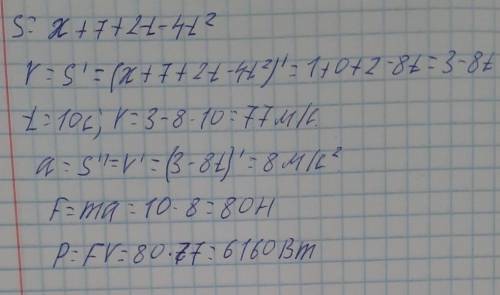 S= x+7+2t-4t²
V=S'=(x+7+2t-4t²)'=1+0+2-8t=3-8t
t=10c; V=3-8·10=77м/с
a=S''=V'=(3-8t)'=8м/с²
F=ma=10·8=80Н
P=FV=80·77=6160Вт